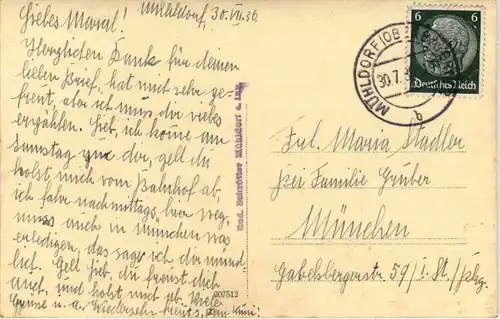 Mühldorf, 30.VII.36
Liebes Maral!
Herzlichen Dank für deinen
lieben Brief, hat mich sehr ge-
freut, also ich muss dir vieles
erzählen. Gell, ich komme am
Samstag zu dir, gell du
holst mich vom Bahnhof ab,
ich fahr nachmittags hier weg,
muss auch in München was
erledigen, das sag ich dir münd-
lich. Gell Hub, du freust dich
auch, und holst mich ab. Viele
Grüsse u. a. Wiedersehn
Bad. Schrötter Mühldorf a. Inn
007512
MÜHLDORF (OB
30.7.3
b
6 6
Deutsches Reich
Frl. Maria Stadler
bei Familie Gruber
München
Gabelsbergerstr. 59/I. St./